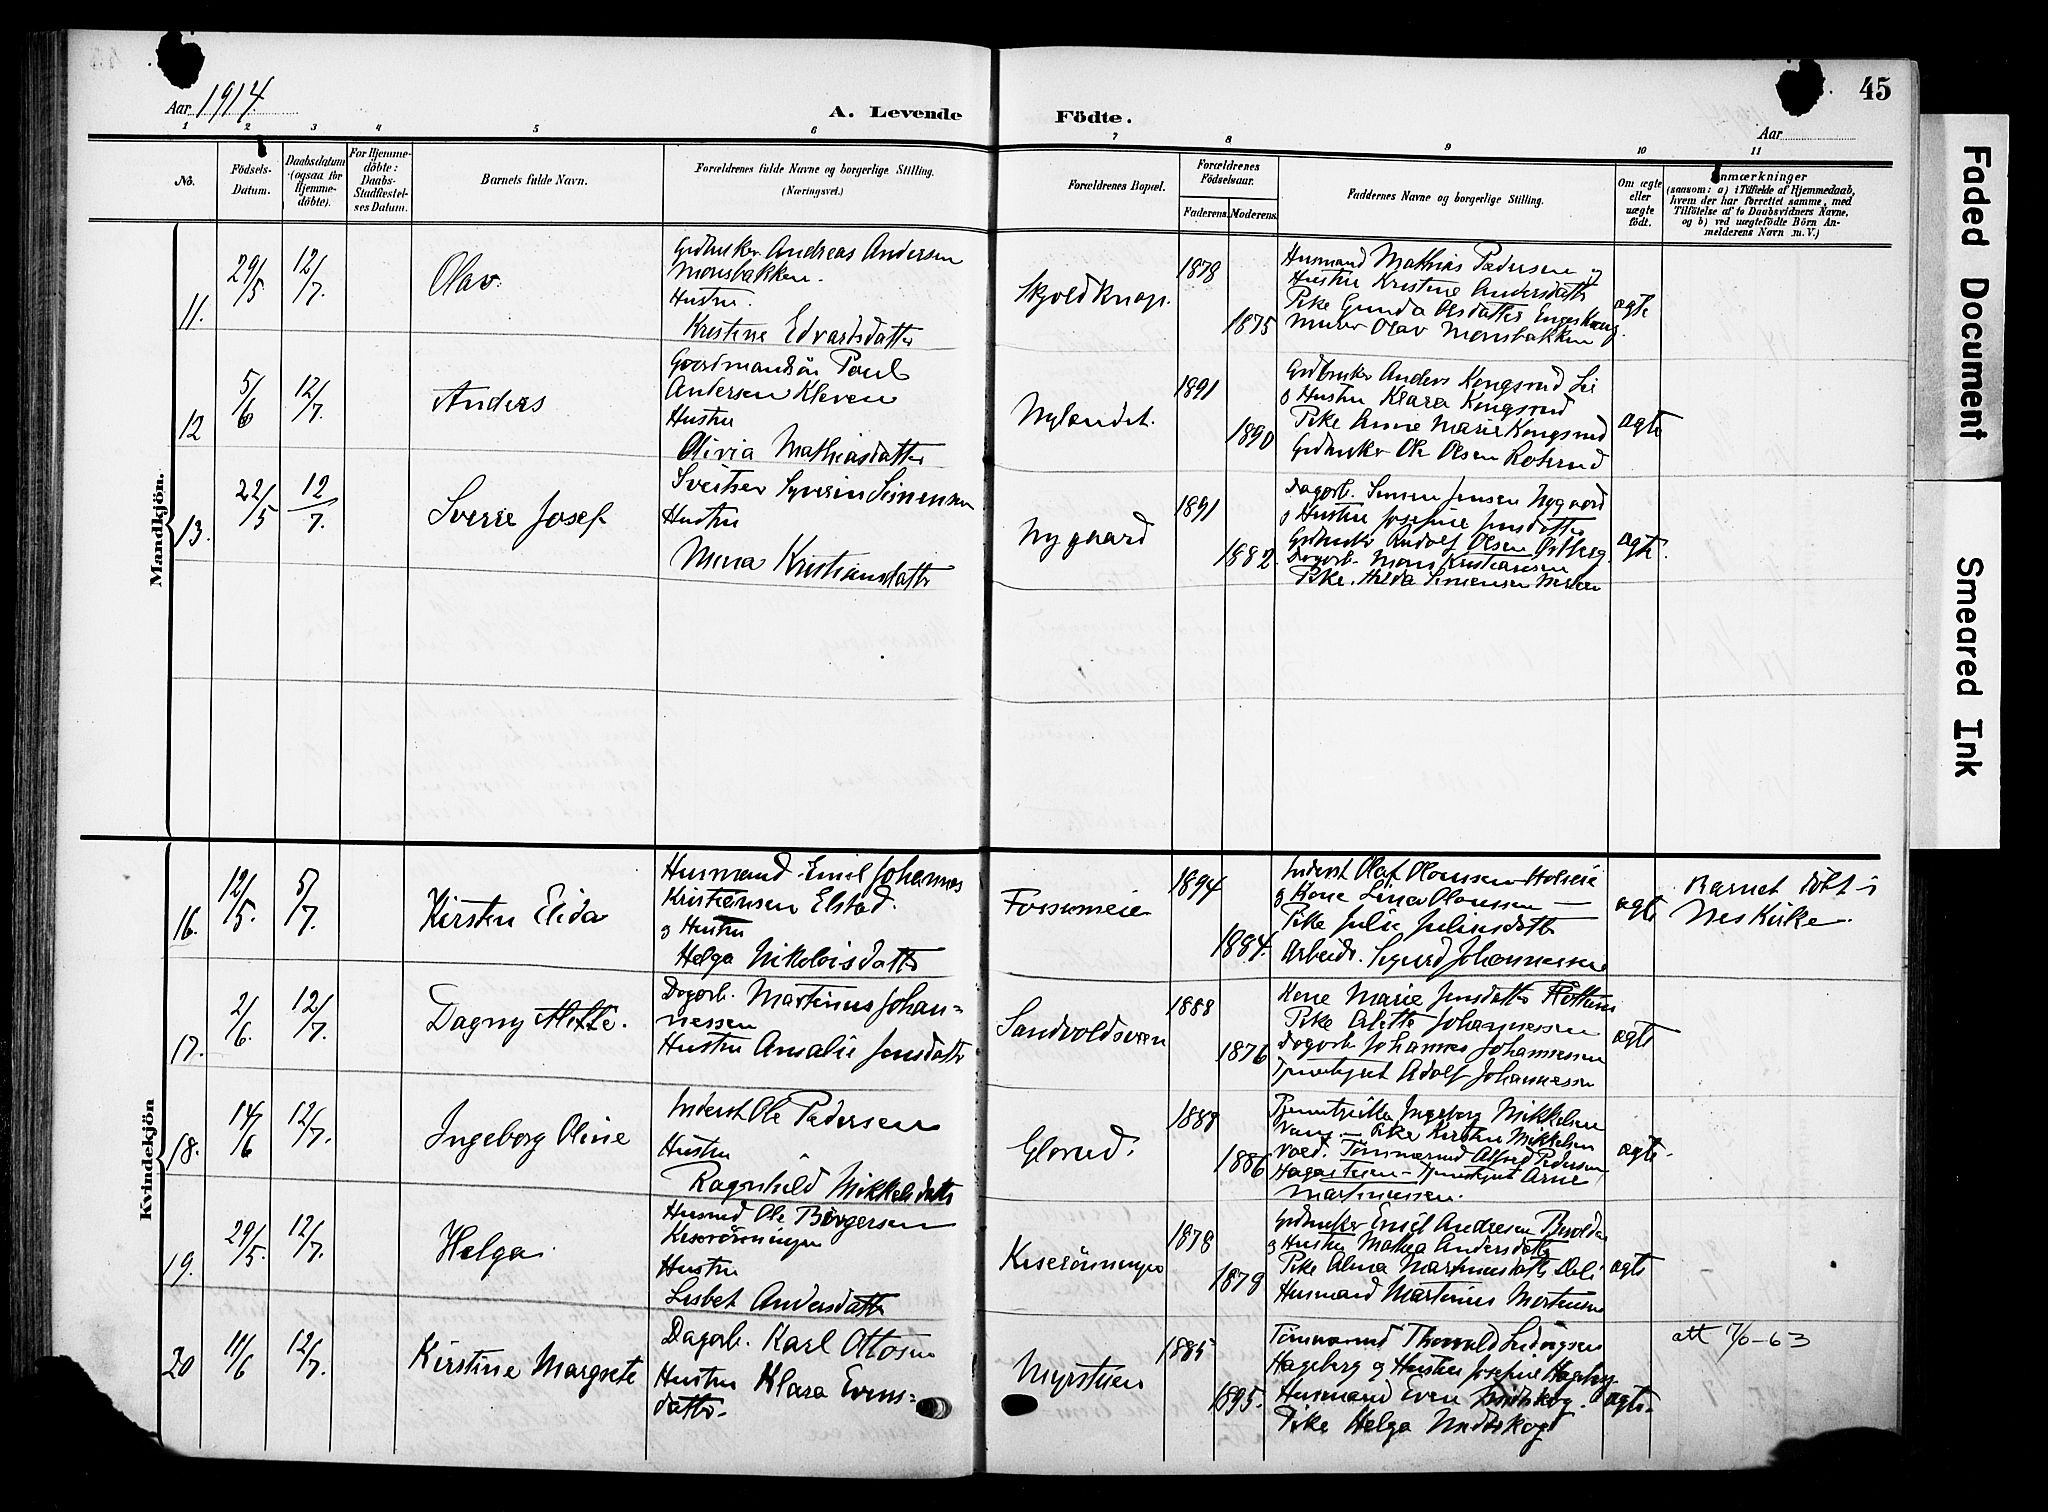 Aar 1914.
A. Levende
Födte.
45
Aar
1 2 3 4 5 6 7 8 9 10 11
No.
Födsels-
Datum.
Daabsdatum
(ogsaa for
Hjemme-
döbte).
For Hjemme-
döbte:
Daabs-
Stadfæstel-
ses Datum.
Barnets fulde Navn.
Forældrenes fulde Navne og borgerlige Stilling.
(Næringsvei.)
Forældrenes Bopæl.
Forældrenes
Födselsaar.
Faderens.
Moderens.
Faddernes Navne og borgerlige Stilling.
Om ægte
eller
uægte
födt.
Anmærkninger
(saasom: a) i Tilfælde af Hjemmedaab,
hvem der har forrettet samme, med
Tilföielse af to Daabsvidners Navne,
og b) ved uægtefödte Börn An-
melderens Navn m. V.)
Mandkjön.
11.
29/5.
12/7.
Olav.
Grdbruker Andreas Andersen
Monsbakken.
Hustru.
Kristine Edvardsdatter
Skjoldknap.
1878
1875
Husmand Mathias Pedersen og
Hustru Kristine Andersdatter
Pike Gunda Olsdatter
Murer Olav Monsbakken
ægte
12
5/6
12/7.
Anders
Gaardmandsön Paul
Andersen Kleven
Hustru
Olivia Mathiasdatter
Nylandet.
1891
1890
Grdbruker Anders Kongsrud
og Hustru Klara Kongsrud
Pike Anne Marie Kongsrud
Grdbruker Ole Olsen
ægte
13.
22/5
12/7.
Sverre Josef
Sveitser Syverin Simensen
Hustru
Mina Kristiansdatter
Nygaard
1891
1882.
Dagarb. Simen Jensen Nygaard
og Hustru Josefine Jensdatter
Grdbruker Rudolf Olsen Östberg
Dagarb. Mons Kristiansen
Pike. Hilda Simensen
ægte.
Kvindekjön
16.
12/5.
5/7.
Kirsten Elida
Husmand Emil Johannes
Kristiansen Elstad.
og Hustru
Helga Nikolaisdatter
Fossumeie
1894
1884.
Inderst Olaf Olaussen
og Kone Lina Olaussen —
Pike Julie Juliusdatter
Arbeids. Sigurd Johannessen
ægte
Barnet döbt i
Nes Kirke.
17.
2/6.
12/7.
Dagny Alette.
Dagarb. Martinus Johan-
nessen
Hustru Amalie Jensdatter
Sandvoldsveen
1888
1876
Kone Marie Jensdatter
Pike Alette Johannessen
Dagarb Johannes Johannessen
Tjenestegut Adolf Johannessen
ægte
18.
14/6
12/7.
Ingeborg Oline
Inderst Ole Pedersen
Hustru
Ragnhild Mikkelsdatter
Glorud.
1888
1886
Tjenestepike Ingeborg Mikkelsen
Pike Kirsten Mikkelsen
Tömmermand Alfred Pedersen
Tjenestegut Arne
Martinussen.
ægte.
19.
29/5.
12/7.
Helga
Husmd Ole Börgersen
Kiserönningen
Hustru
Lisbet Andersdatter
Kiserönningen
1878
1879
Grdbruker Emil Andresen
og Hustru Mathea Andersdatter
Pike Alma Martinusdatter Deli
Husmand Martinus Mortensen
ægte
20
11/6
12/7.
Kirstine Margrete
Dagarb. Karl Ottosen
Hustru Klara Evens-
datter.
Myrstuen
1885
1895.
Tömmermand Thorvald Ludvigsen
Hageberg og Hustru Josefine Hageberg.
Husmand Even
Pike Helga
ægte.
att
Faded Document
Smeared Ink